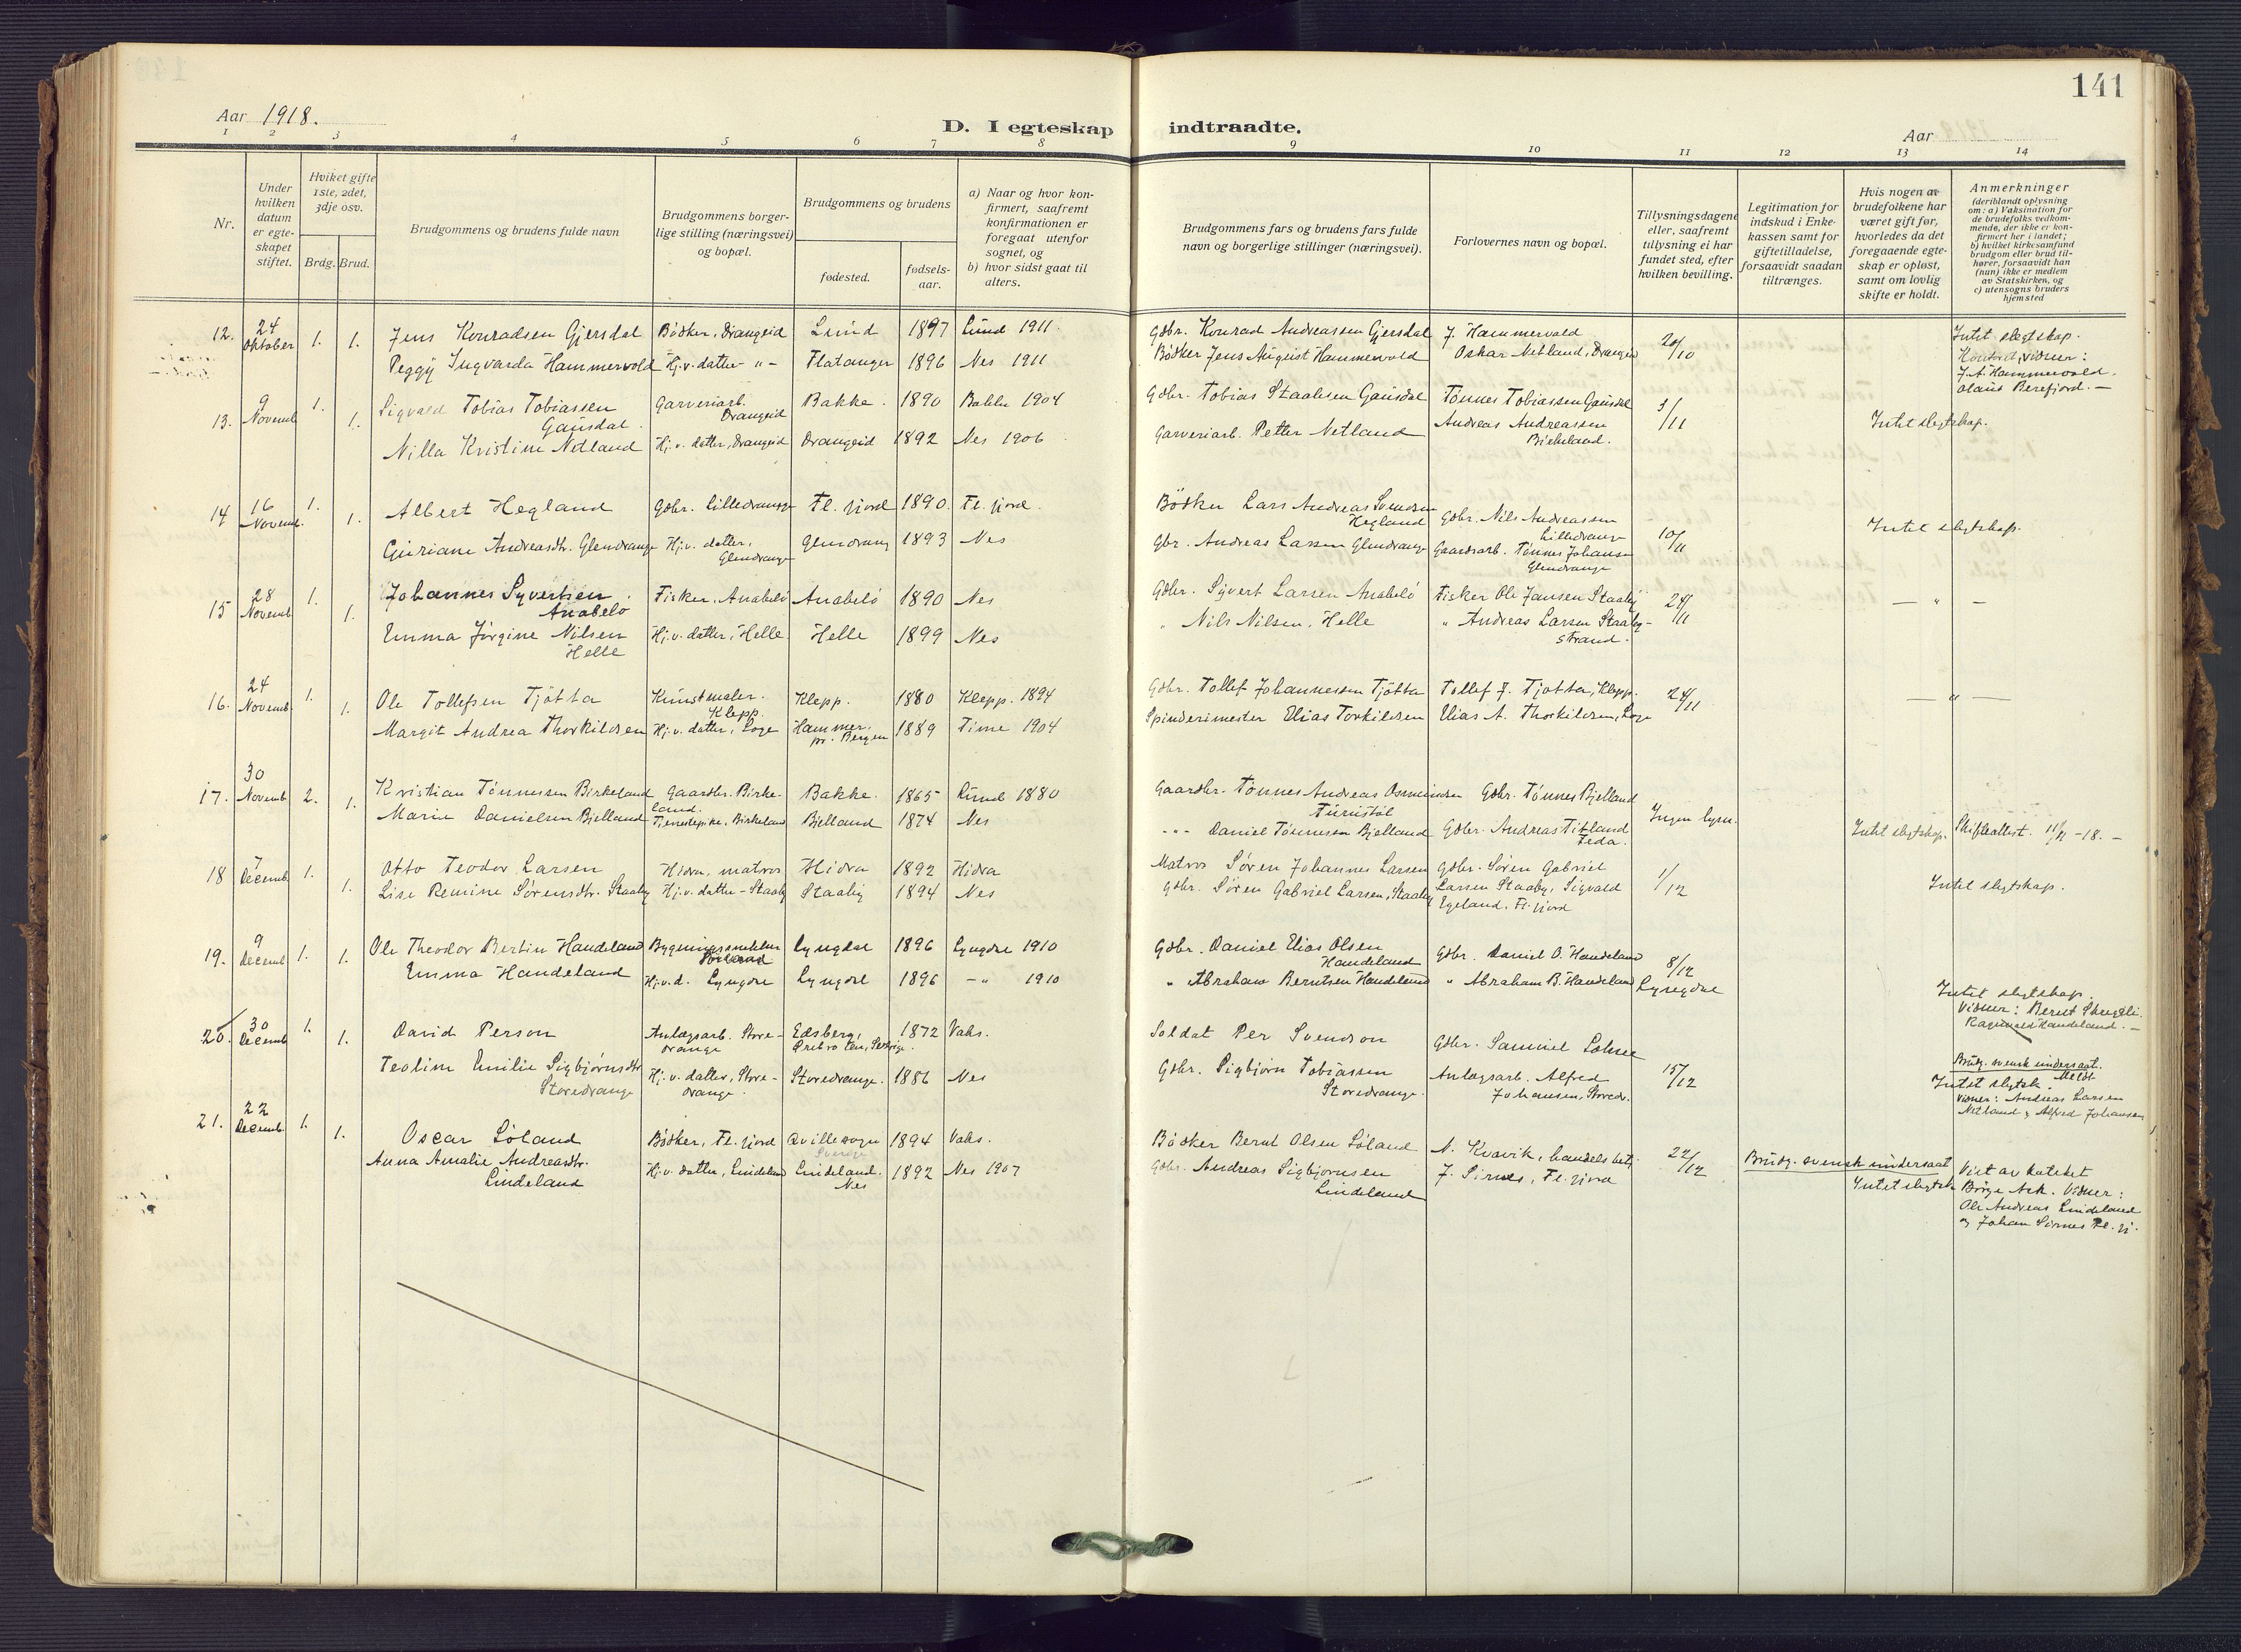 141
Aar 1918.
D. I egteskap indtraadte.
Aar
1 2 3 4 5 6 7 8 9 10 11 12 13 14
Nr.
Under hvilken datum er egte-skapet stiftet.
Hvilket gifte 1ste, 2det, 3dje osv.
Brdg. Brud.
Brudgommens og brudens fulde navn
Brudgommens borger-lige stilling (næringsvei) og bopæl.
Brudgommens og brudens
fødested.
fødsels-aar.
a) Naar og hvor kon-firmert, saafremt konfirmationen er foregaat utenfor sognet, og
b) hvor sidst gaat til alters.
Brudgommens fars og brudens fars fulde navn og borgerlige stillinger (næringsvei).
Forlovernes navn og bopæl.
Tillysningsdagene eller, saafremt tillysning ei har fundet sted, efter hvilken bevilling.
Legitimation for indskud i Enke-kassen samt for giftetilladelse, forsaavidt saadan tiltrænges.
Hvis nogen av brudefolkene har været gift før, hvorledes da det foregaaende egte-skap er opløst, samt om lovlig skifte er holdt.
Anmerkninger (deriblandt oplysning om: a) Vaksination for de brudefolks vedkom-mende, der ikke er kon-firmert her i landet; b) hvilket kirkesamfund brudgom eller brud til-hører, forsaavidt han (hun) ikke er medlem av Statskirken, og c) utensogns bruders hjemsted
12. 24 Oktober 1. 1. Jens Konradsen Gjersdal Bödker, Drangeid Lund 1897 Lund 1911. Gdbr. Konrad Andreassen Gjersdal J. Hammervold 20/10 Intet slegtskap.
Peggy Ingvarda Hammervold Hj.v. datter - " - Flatanger 1896 Nes 1911 Bödker Jens August Hammervold Oskar Netland, Drangeid
vidner: J. A. Hammervold. Olaus Berefjord. —
13. 9 Novemb 1. 1. Sigvald Tobias Tobiassen Gausdal Garveriarb. Drangeid Bakke 1890 Bakke 1904 Gdbr. Tobias Staalesen Gausdal Tönnes Tobiassen Gausdal 3/11 Intet slegtskap.
Nilla Kristine Netland Hj.v. datter, Drangeid Drangeid 1892 Nes 1906 Garveriarb. Petter Netland Andreas Andreassen Birkeland.
14 16 Novemb. 1. 1. Albert Hegland Gdbr. Lilledrange Fl. fjord 1890. Fl. fjord. Bödker Lars Andreas Svendsen Hegland Gdbr. Nils Andreassen Lilledrange 10/11 Intet slegtskap.
Guriane Andreasdtr. Glendrange Hj.v. datter, Glendrange Glendrang 1893 Nes Gbr. Andreas Larsen Glendrange Gaardsarb. Tönnes Johansen Glendrange
15 28 Novemb. 1. 1. Johannes Syvertsen Anabelö Fisker, Anabelö Anabelö 1890 Nes Gdbr. Syvert Larsen Anabelö Fisker Ole Jansen Staaby 24/11 — " —
Emma Jörgine Nilsen Helle Hj.v. datter, Helle Helle 1899 Nes " Nils Nilsen, Helle " Andreas Larsen Staaby-strand.
16. 24 Novemb. 1. 1. Ole Tollefsen Tjötta Kunstmaler. Klepp. Klepp. 1880 Klepp. 1894 Gdbr. Tollef Johannessen Tjötta Tollef J. Tjötta, Klepp. 24/11 — " —
Margit Andrea Thorkildsen Hj.v. datter, Loge Hammer pr. Bergen 1889 Time 1904 Spinderimester Elias Torkildsen Elias A. Thorkildsen, Loge
17. 30 Novemb. 2. 1. Kristian Tönnessen Birkeland Gaardbr. Birke-land. Bakke. 1865 Lund 1880 Gaardbr. Tönnes Andreas Osmundsen Gdbr. Tönnes Bjelland Ingen lysn.
Marie Danielsen Bjelland Tjenestepike, Birkeland Bjelland 1874 Nes - - - Daniel Tönnesen Bjelland Gdbr. Andreas Titland Feda. Intet slegtskap. Skifteattest. 11/11 -18. -
18 7 Decemb. 1. 1. Otto Teodor Larsen Hidra, matros Hidra 1892 Hidra Matros Sören Johannes Larsen Gdbr. Sören Gabriel 1/12 Intet slegtskap.
Lise Remine Sörensdtr. Staaby Hj.v. datter - Staaby Staaby 1894 Nes Gdbr. Sören Gabriel Larsen, Staaby Larsen Staaby, Sigvald Egeland. Fl. fjord
19. 9 Decemb 1. 1. Ole Theodor Bertin Handeland Bygningssnekker Lyngdal 1896 Lyngdal 1910 Gdbr. Daniel Elias Olsen Handeland Gdbr. Daniel O. Handeland 8/12
Emma Handeland Hj.v.d. Lyngdal Lyngdal 1896 - " 1910 " Abraham Berntsen Handeland " Abraham B. Handeland Lyngdal Intet slegtskap.
Vidner: Bernt
Ragnvald Handeland. -
20. 30 Decemb 1. 1. David Person Anlægsarb. Store-drange Edsberg, Örebro Len, Sverige. 1872 Vaks. Soldat Per Svendson Gdbr. Samuel 15/12 Brudg. svensk undersaat.
Teoline Emilie Sigbjörnsdtr Storedrange Hj.v. datter, Store-drange. Storedrange. 1886 Nes Gdbr. Sigbjörn Tobiassen Storedrange. Anlægsarb. Alfred Johansen, Storedr. Intet slegtsk. Meldt
vidner: Andreas Larsen Netland & Alfred Johansen
21. 22 Decemb. 1. 1. Oscar Löland Bödker, Fl. fjord Qvillesogn 1894 Vaks. Bödker Bernt Olsen Löland N. Kvavik, handelsbetj. 22/12 Brudg. svensk undersaat
Anna Amalie Andreasdtr. Lindeland Hj.v. datter, Lindeland Lindeland. Nes 1892 Nes 1907 Gdbr. Andreas Sigbjörnsen Lindeland J. Sirnes, Fl. fjord Intet slegtsk
Viet av kateket Börge Ask. Vidner: Ole Andreas Lindeland og Johan Sirnes Fl. fj.